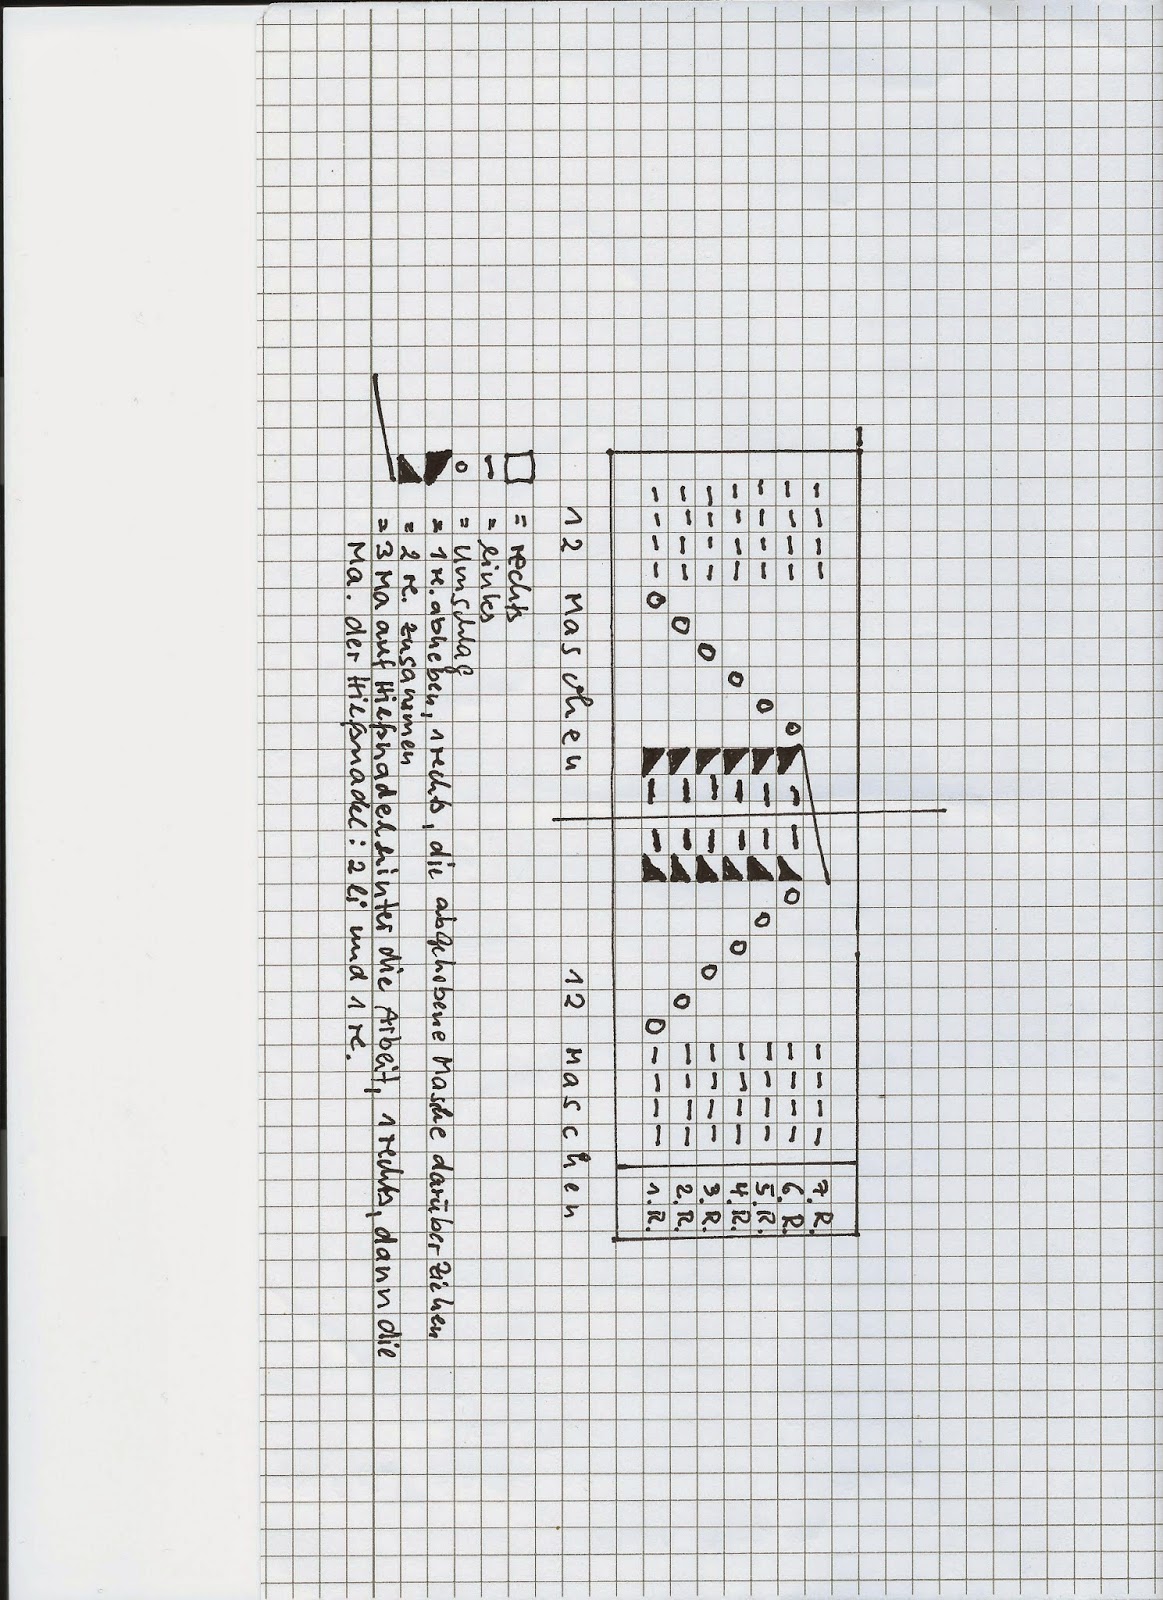 7. R.
6. R.
5. R.
4. R.
3. R.
2. R.
1. R.
12 Maschen 12 Maschen
= rechts
= links
o = Umschlag
= 1 re. abheben, 1 rechts, die abgehobene Masche darüber ziehen
= 2 re. zusammen
= 3 Ma auf Hilfsnadel hinter die Arbeit, 1 rechts, dann die
Ma. der Hilfsnadel: 2 li und 1 re.